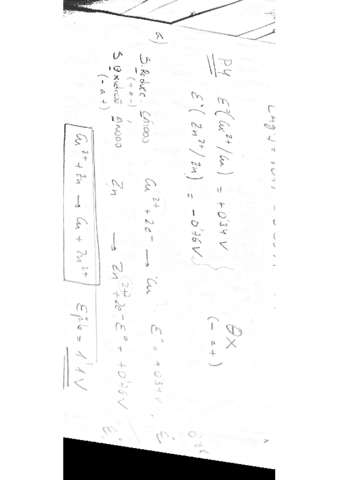 P4 E°(Cu²⁺/Cu) = +0'34 V
E°(Zn²⁺/Zn) = -0'76 V
OX
(- a +)
a) S. Reduce
Cu²⁺ + 2e⁻ → Cu E° = +0'34 V
(+ a -)
S. Oxida Ánodo Zn → Zn²⁺ + 2e⁻ E° = +0'76 V
(- a +)
Cu²⁺ + Zn → Cu + Zn²⁺ E°pila = 1'1 V